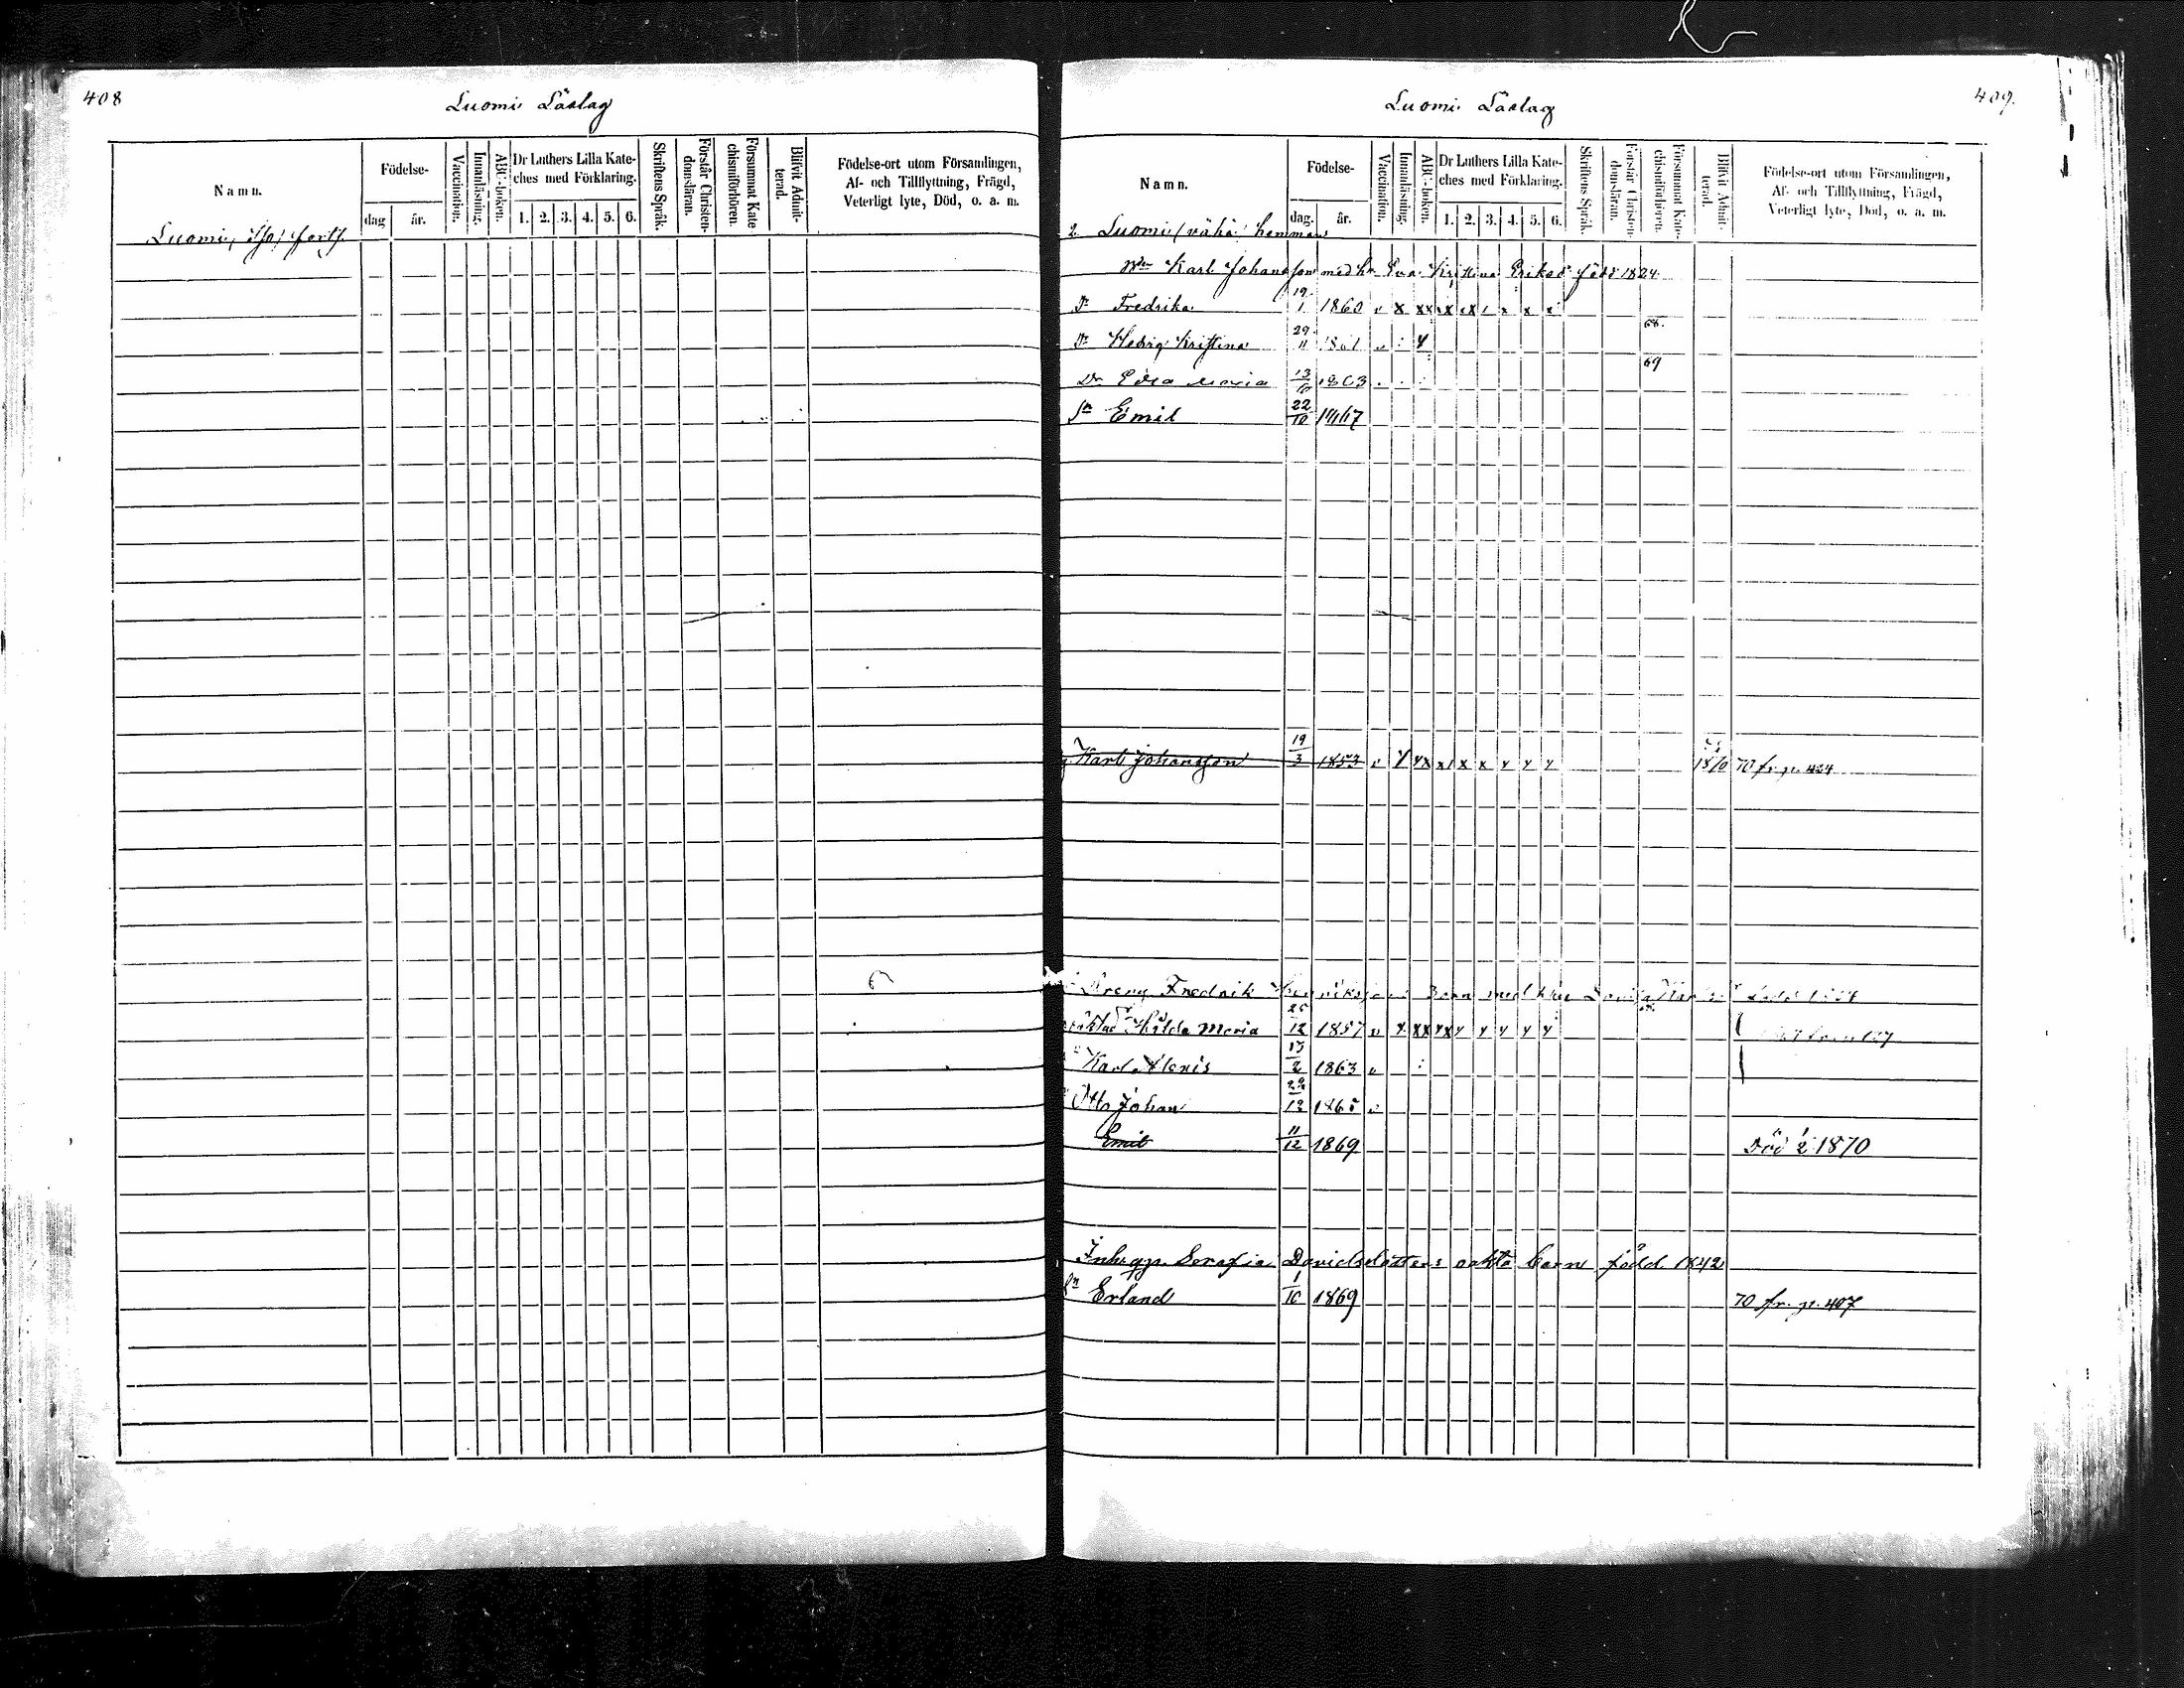 408
Luomi Läslag
Namn.
Födelse-
dag
år.
Vaccination.
Innanläsning.
ABC-boken.
Dr Luthers Lilla Kate-
ches med Förklaring.
1. 2. 3. 4. 5. 6.
Skriftens Språk.
Förstår Christen-
domsläran.
Försummat Kate
chismiförhören.
Blifvit Admit-
terad.
Födelse-ort utom Församlingen,
Af- och Tillflyttning, Frägd,
Veterligt lyte, Död, o. a. m.
Luomi, iso, forts.
409.
Luomi Läslag
Namn.
Födelse-
dag.
år.
Vaccination.
Innanläsning.
ABC-boken.
Dr Luthers Lilla Kate-
ches med Förklaring.
1. 2. 3. 4. 5. 6.
Skriftens Språk.
Förstår Christen-
domsläran.
Försummat Kate-
chismiförhören.
Blifvit Admit-
terad.
Födelse-ort utom Församlingen,
Af- och Tillflyttning, Frägd,
Veterligt lyte, Död, o. a. m.
2. Luomi (vähä) hemman
Karl Johansson med h. Eva Kristina Eriksd född 1824
Dr Fredrika 19/1 1860 x xx x x x
68.
Dr Hedvig Kristina 29/11 1861
69
Dr Edla Maria 13/10 1863
Sn Emil 22/10 1867
Karl Johansson 19/3 1853 1870 70 fr. p. 424
Dreng Fredrik Henriksons Barn med h. Lovisa
Hilda Maria 25/12 1857
Karl Alexis 15/2 1863
Otto Johan 29/12 1865
Emil 11/12 1869 Död 1/2 1870
Inh. qp. Serafia Davidsdotters oäkta barn född 1842
Sn Erland 1/10 1869 70 fr. p. 407